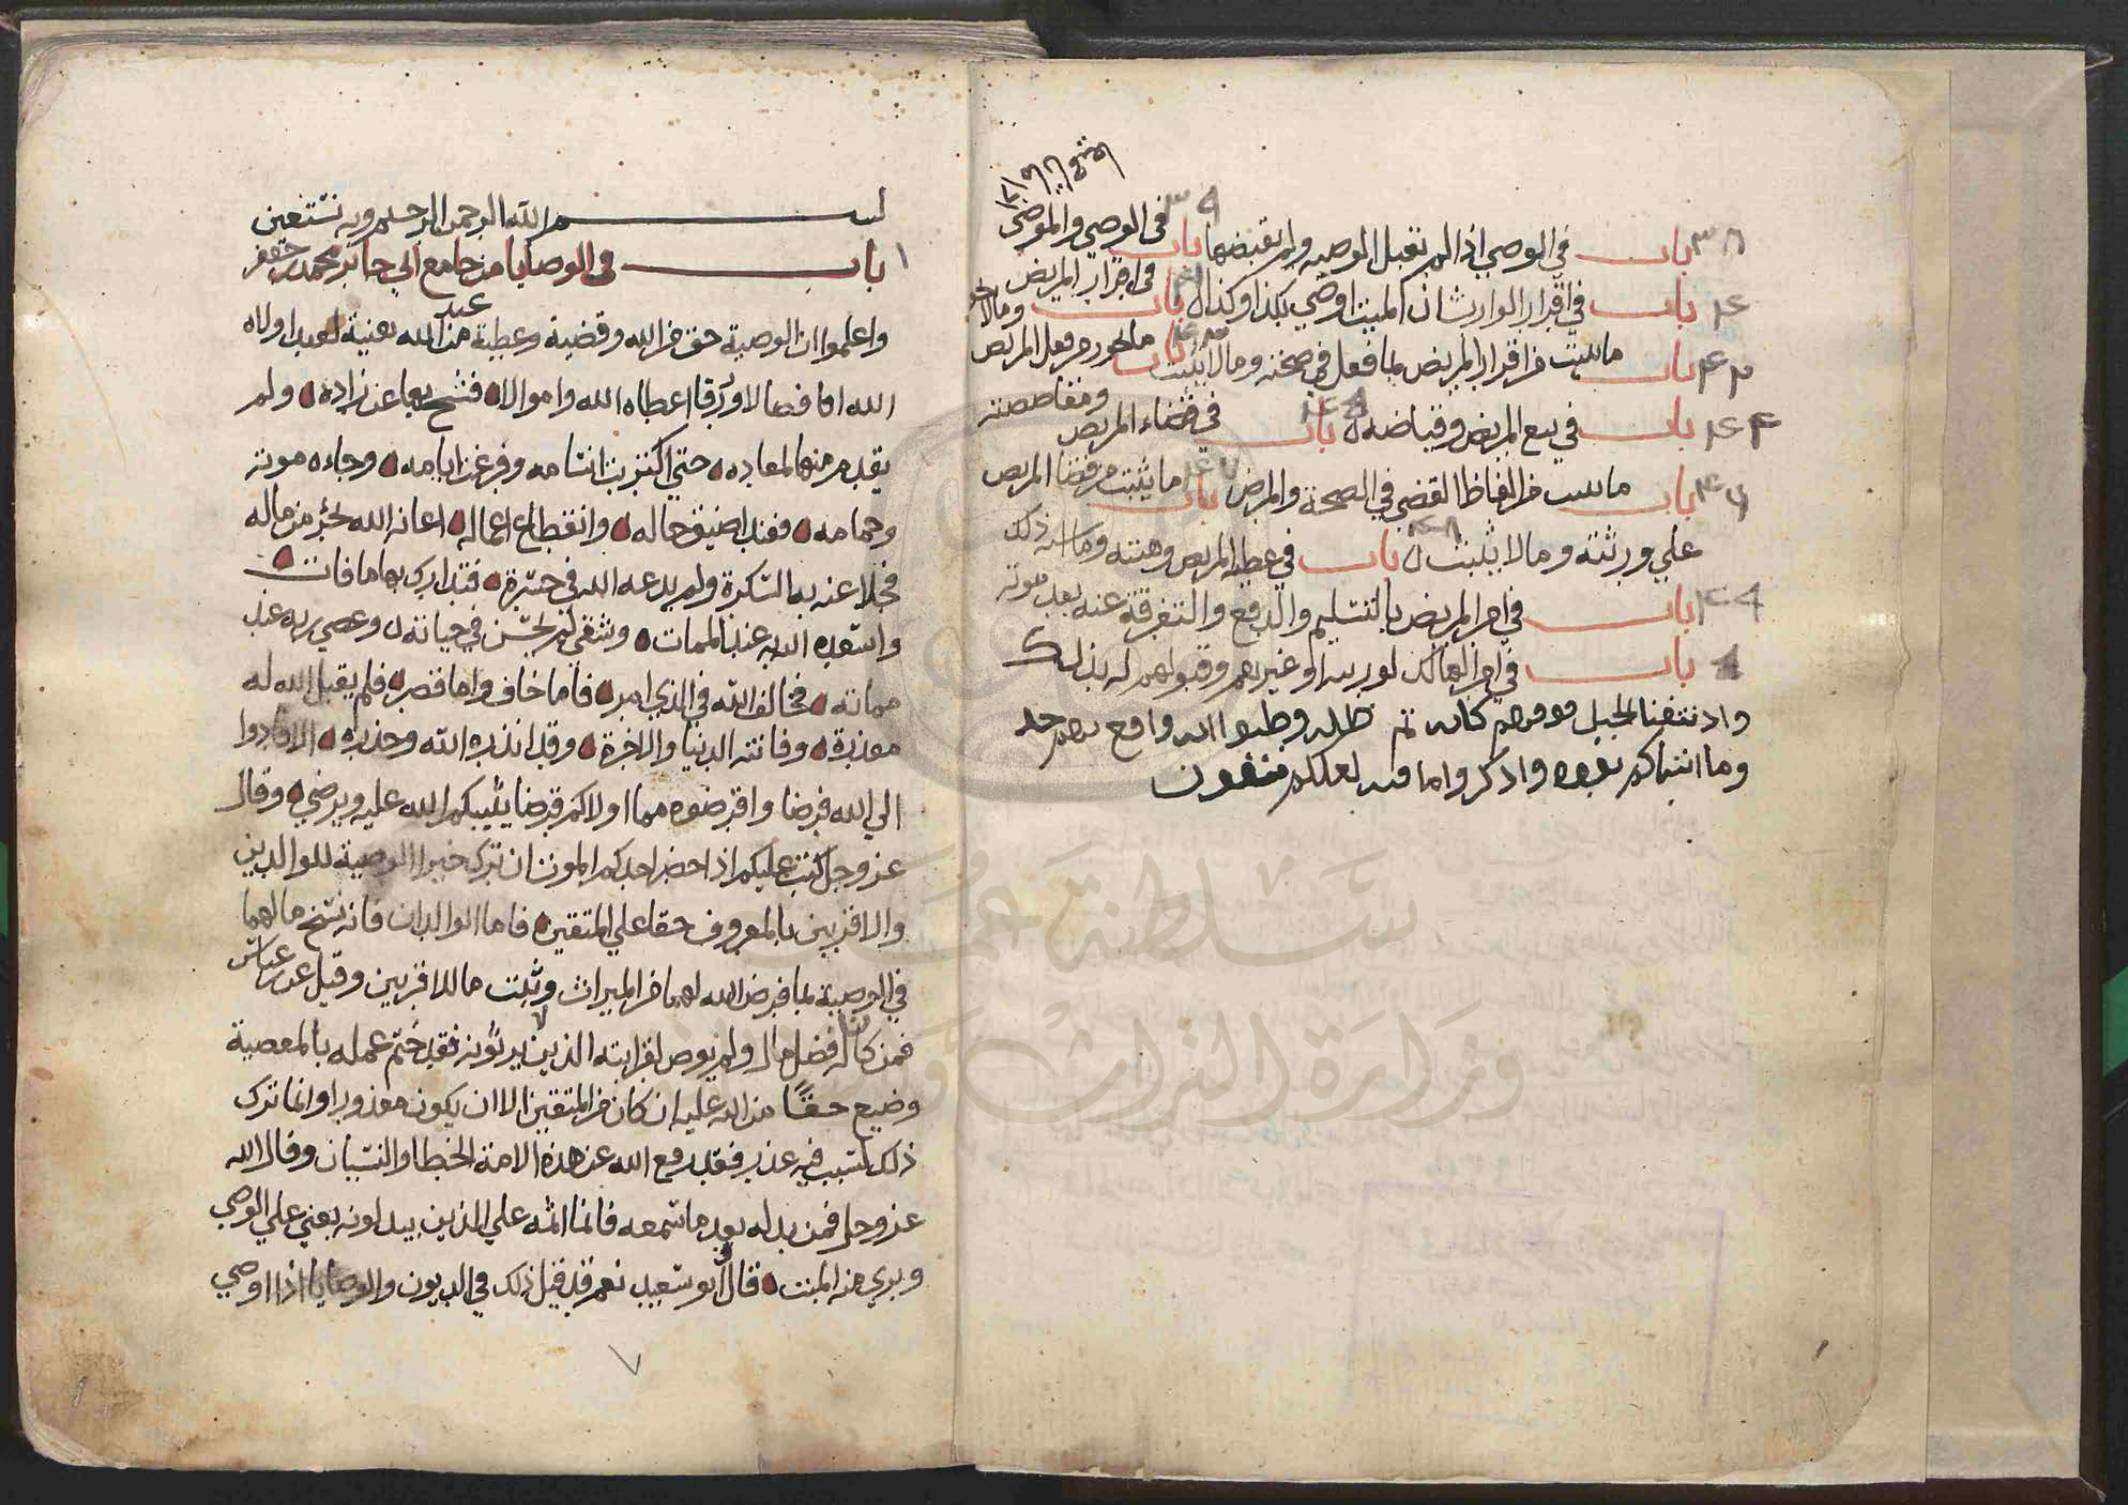 ٣٨ باب في الوصي اذا لم تقبل الوصيه ولم يقبضها باب ٣٩ في الوصي والموصى
٤٠ باب في اقرار الوارث ان الميت اوصي بكذا وكذا باب في اقرار المريض
٤٢ باب ما يثبت من اقرار المريض بما فعل في صحته وما لا يثبت باب ٤٣ ما يجوز من فعل المريض
٤٤ باب في بيع المريض وقياضه باب ٤٥ في قضاء المريض ومقاصصته
٤٦ باب ما يثبت من الفاظ القضي في الصحة والمرض باب ٤٧ ما يثبت من قضا المريض
علي ورثته وما لا يثبت ٤٨ باب في عطية المريض وهبته وما اشبه ذلك
٤٩ باب في امر المريض بالتسليم والدفع والتفرقة عنه بعد موته
باب في امر الهالك لورثته او غيرهم وقبولهم له بذلك
واذ نتقنا الجبل فوقهم كانه ظله وظنوا انه واقع بهم خذ
وما اتيناكم بقوه واذكروا ما فيه لعلكم تتقون
بسم الله الرحمن الرحيم وبه نستعين
١ باب في الوصايا من جامع ابي جابر محمد بن جعفر
واعلموا ان الوصية حق من الله وقضية وعطية من الله بعنية لعبد اولاه
الله اما فصالا ورزقا اعطاه الله واموالا فشح بها عن زاده ولم
يقدم منها لمعاده حتي اكتربت انتامه وفرغت ايامه وجاءه موته
وحمامه فعند ضيق حاله وانقطاع اعماله اعانه الله بجزء من ماله
فجلا عنه بها السكرة ولم يدعه الله في حسرة فتدارك بها ما فات
واسعده الله عند الممات وشقي لم يحسن في حياته وعصي ربه عند
مماته فخالف الله في الذي امر فاما خاف واما قصر فلم يقبل الله له
معذرة وفاتته الدنيا والاخرة وقد انذره الله وحذره الا فادوا
الي الله فرضا واقرضوه مما اولاكم قرضا يثيبكم الله عليه ويرضي وقال
عز وجل كتب عليكم اذا حضر احدكم الموت ان ترك خيرا الوصية للوالدين
والاقربين بالمعروف حقا علي المتقين فاما الوالدان فانه نسخ ما لهما
في الوصية بما فرض الله لهما من الميراث وثبت ما للاقربين وقيل عن ابن عباس
فمن كان له فضل مال ولم يوص لقرابته الذين لا يرثونه فقد ختم عمله بالمعصية
وضيع حقا من الله عليه ان كان من المتقين الا ان يكون معذورا وانما ترك
ذلك لسبب فيه عذر فقد رفع الله عن هذه الامة الخطا والنسيان وقال الله
عز وجل فمن بدله بعد ما سمعه فانما اثمه علي الذين يبدلونه يعني علي الوصي
وبري منه الميت قال ابو سعيد نعم قد قيل ذلك في الديون والوصايا اذا اوصي